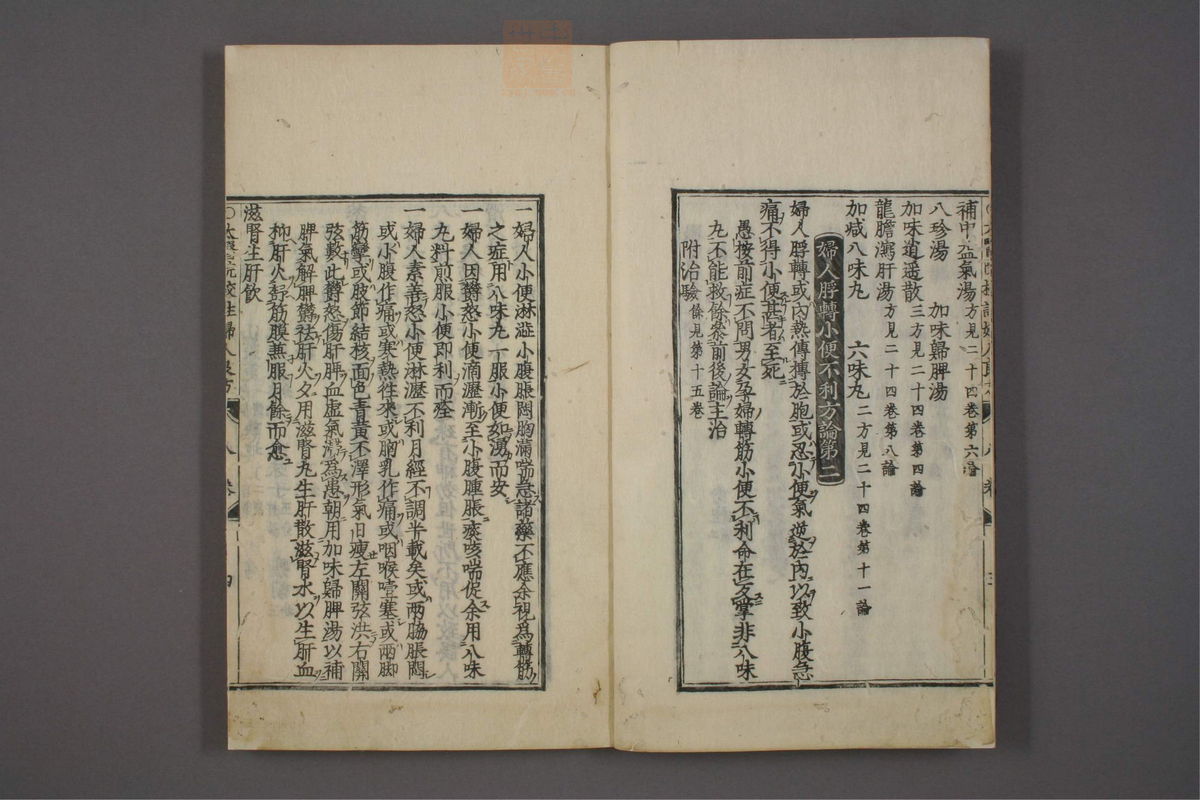 補中益氣湯方見二十四卷第六論
八珍湯　加味歸脾湯
加味逍遥散三方見二十四卷第四論
龍膽瀉肝湯方見二十四卷第八論
加减八味丸　六味丸二方見二十四卷第十一論
婦人脬轉小便不利方論第二
婦人脬轉或内熱傳摶於胞或忍小便氣逆於内以致小腹急
痛不得小便甚者至死
愚按前症不問男女孕婦轉筋小便不利命在反掌非八味
丸不能救餘參前後論主治
附治驗餘見第十五卷
一婦人小便淋澁小腹脹悶胸滿喘急諸藥不應余視爲轉脬
之症用八味丸一服小便如湧而安
一婦人因欝怒小便滴瀝漸至小腹腫脹痰咳喘促余用八味
丸料煎服小便即利而痊
一婦人素善怒小便淋瀝不利月經不調半載矣或兩脇脹悶
或小腹作痛或寒熱往來或胸乳作痛或咽喉噎塞或兩脚
筋攣或肢節結核面色青黄不澤形氣日瘦左關弦洪右關
弦數此欝怒傷肝脾血虚氣滯爲患朝用加味歸脾湯以補
脾氣解脾欝祛肝火夕用滋腎丸生肝散滋腎水以生肝血
抑肝火舒筋膜兼服月餘而愈
滋腎生肝飲
八卷
四